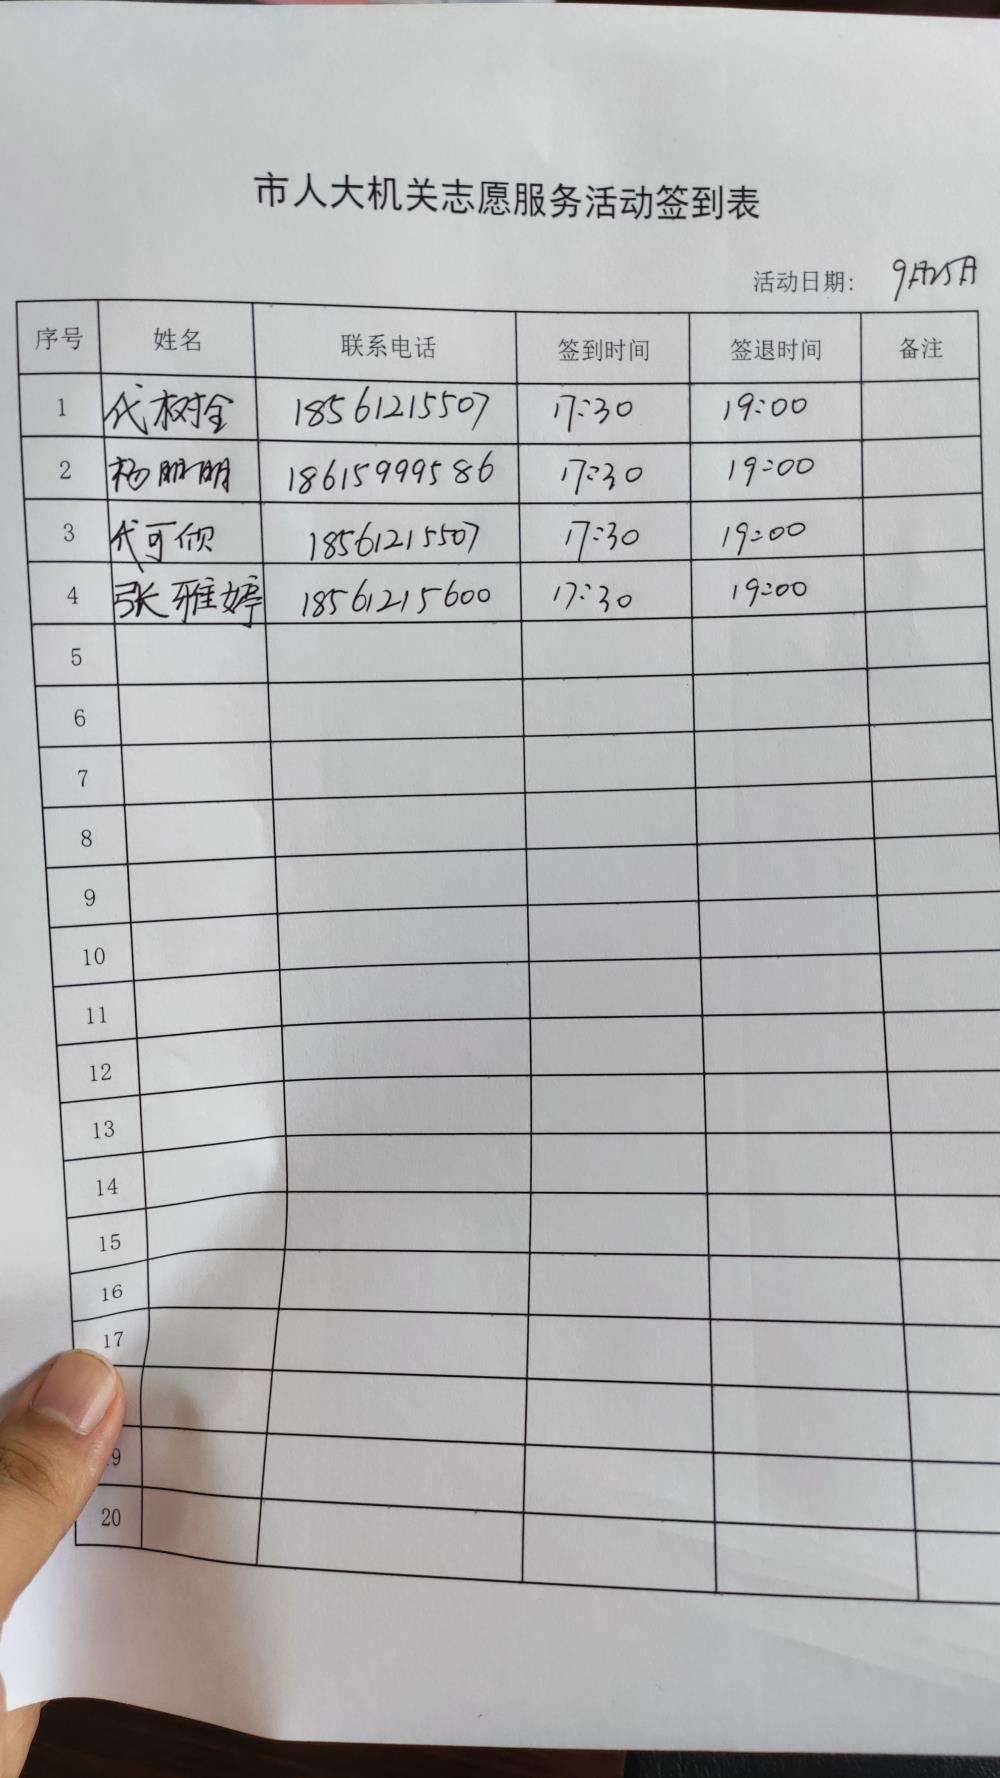 市人大机关志愿服务活动签到表
活动日期: 9月25日
序号 姓名 联系电话 签到时间 签退时间 备注
1 代树全 18561215507 17:30 19:00
2 杨朋明 18615999586 17:30 19:00
3 代可欣 18561215507 17:30 19:00
4 张雅婷 18561215600 17:30 19:00
5
6
7
8
9
10
11
12
13
14
15
16
17
9
20